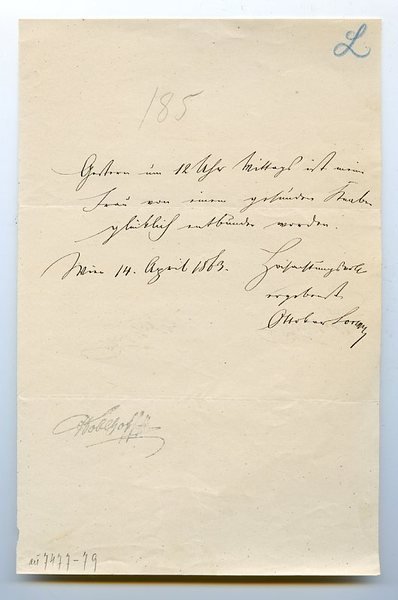 L
185
Gestern um 12 Uhr Mittags ist meine
Frau von einem gesunden Knaben
glücklich entbunden worden.
Wien 14. April 1863. Hochachtungsvoll
ergebenst
Ottokar Lorenz
7477-79